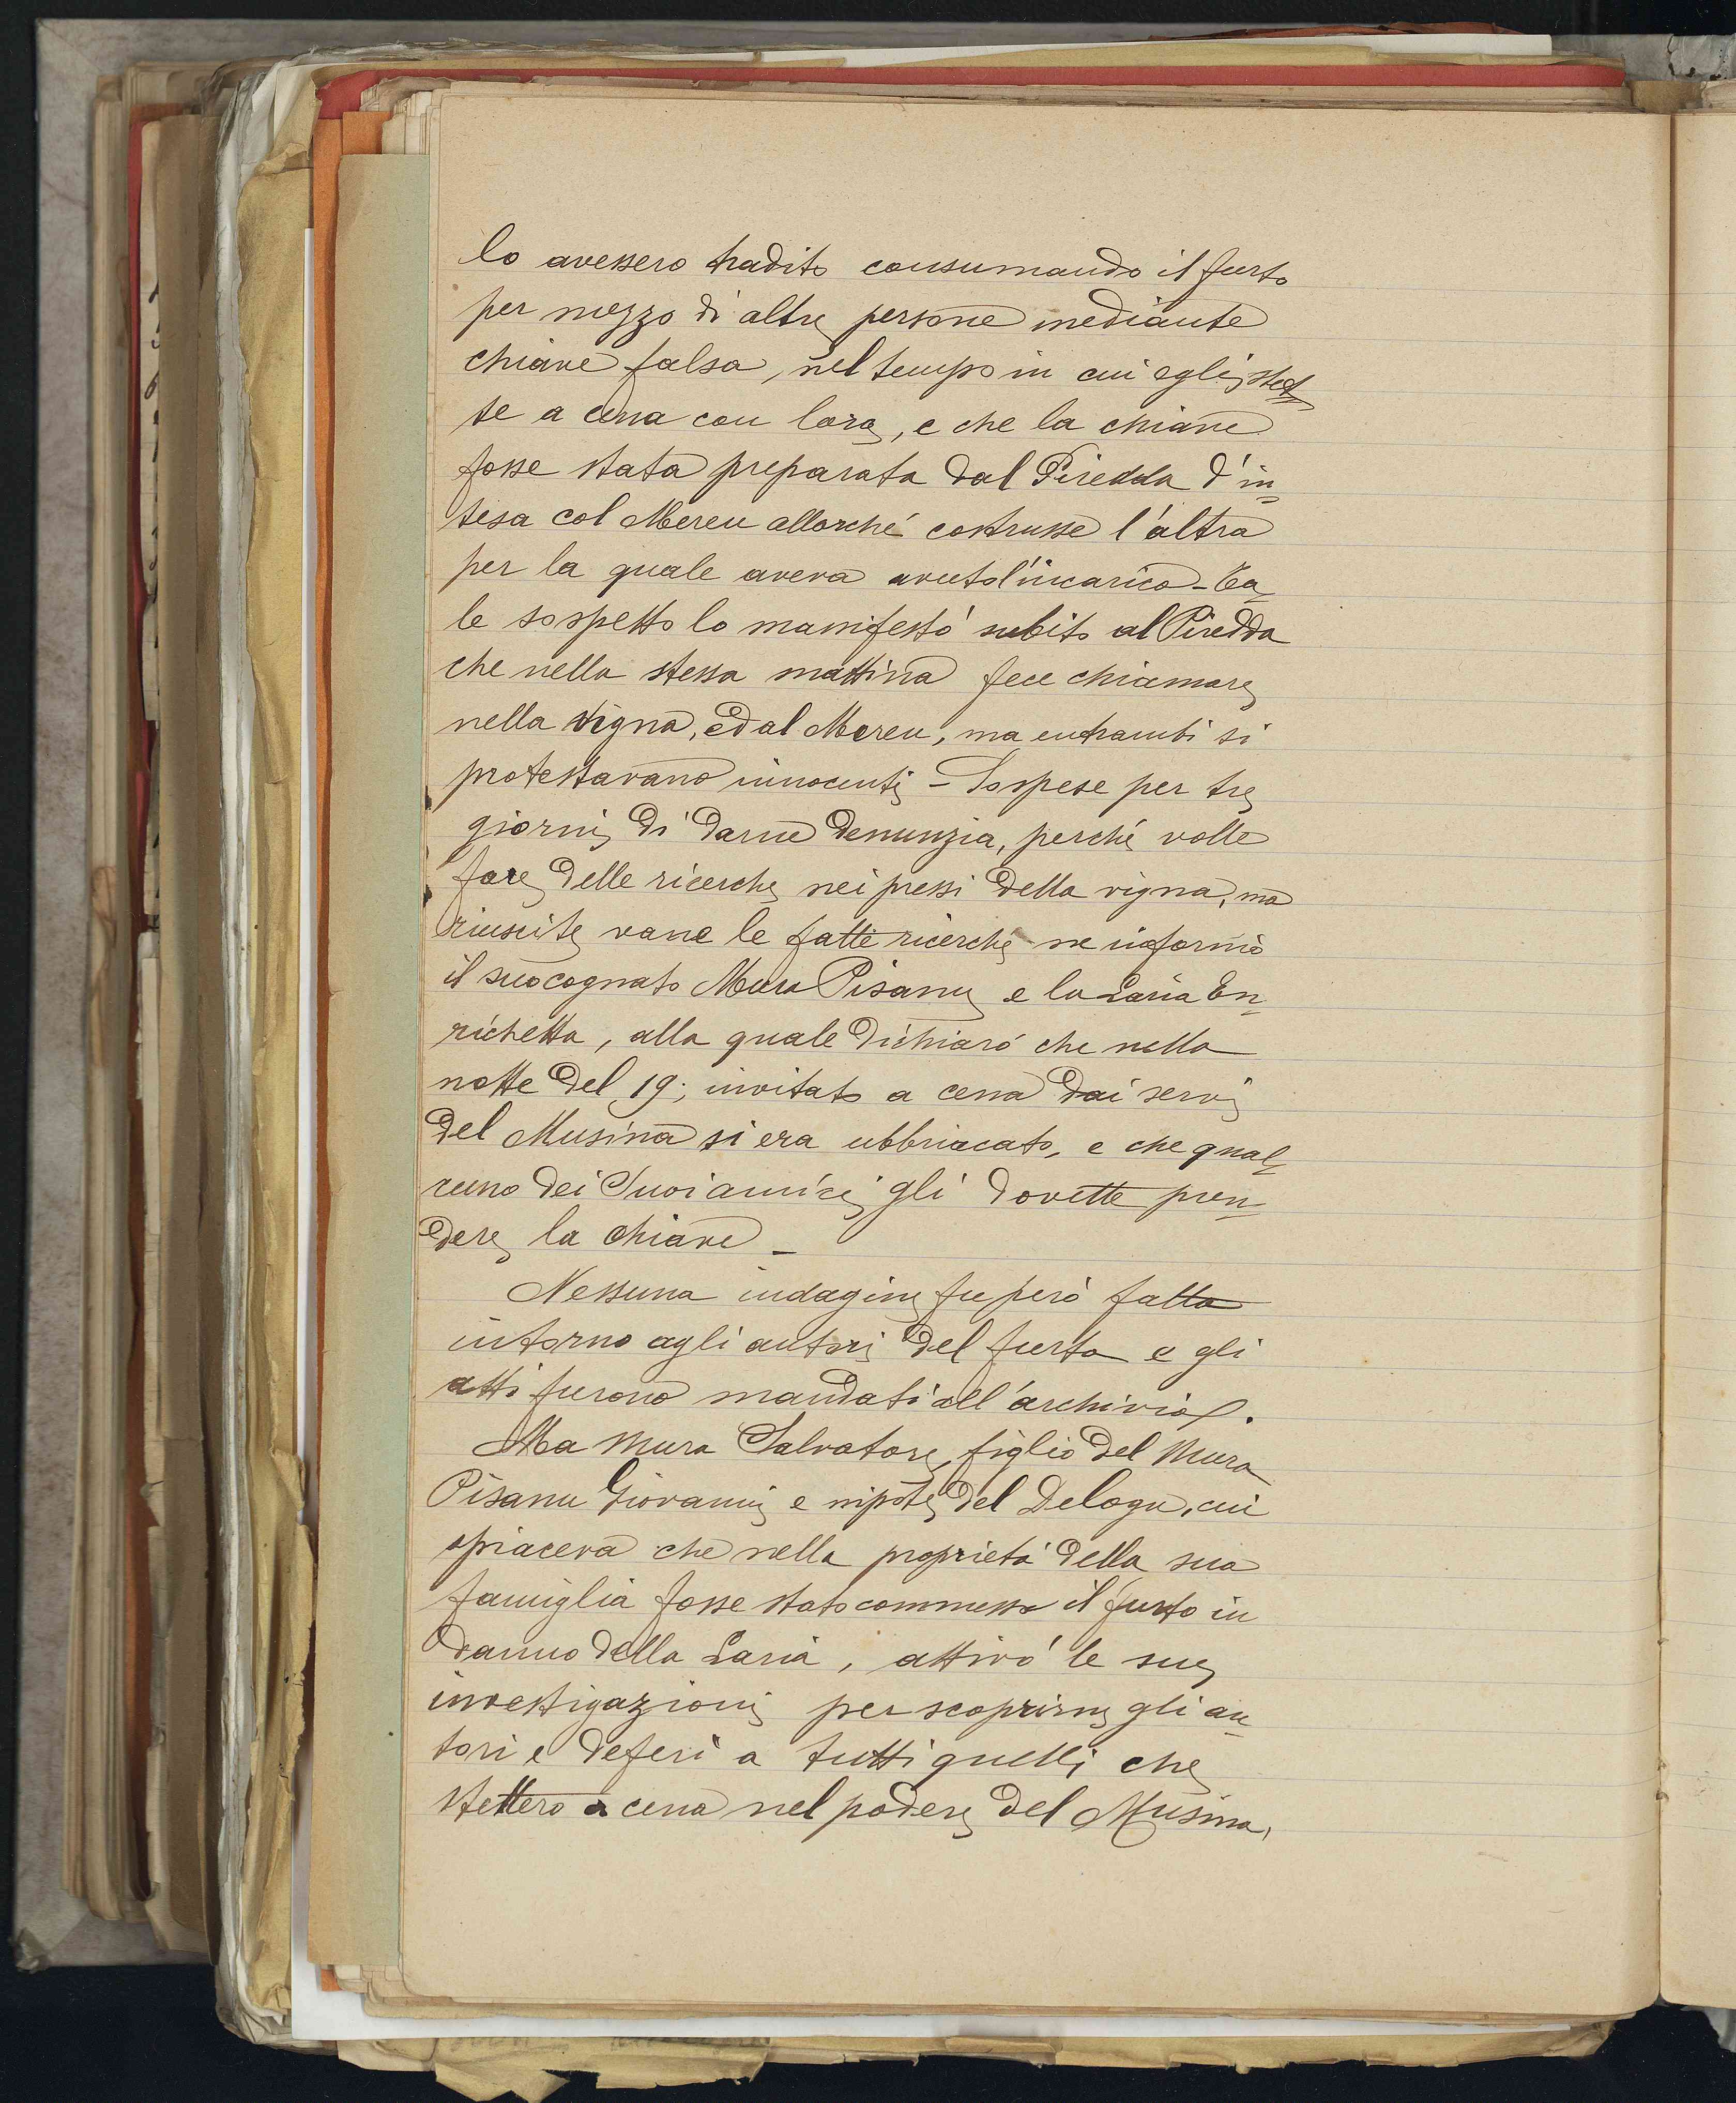 lo avessero tradito consumando il furto
per mezzo di altre persone mediante
chiave falsa, nel tempo in cui egli stet=
te a cena con loro, e che la chiave
fosse stata preparata dal Piredda d'in=
tesa col Mereu allorché costrusse l'altra
per la quale aveva avuto l'incarico - Ta=
le sospetto lo manifestó subito al Piredda
che nella stessa mattina fece chiamare
nella vigna, ed al Mereu, ma entrambi si
protestavano innocenti - Sospese per tre
giorni di darne denunzia, perché volle
fare delle ricerche nei pressi della vigna, ma
riuscite vane le fatte ricerche ne informò
il suo cognato Mura Pisanu e la Laria En=
richetta, alla quale dichiaró che nella
notte del 19; invitato a cena dai servi
del Musina si era ubbriacato, e che qual=
cuno dei suoi amici gli dovette pren=
dere la chiave -
Nessuna indagine fu però fatta
intorno agli autori del furto e gli
atti furono mandati all'archivio.
Ma Mura Salvatore, figlio del Mura
Pisanu Giovanni e nipote del Delogu, cui
spiaceva che nella proprietá della sua
famiglia fosse stato commesso il furto in
danno della Laria, attivó le sue
investigazioni per scoprirne gli au=
tori e deferì a tutti quelli che
stettero a cena nel podere del Musina,